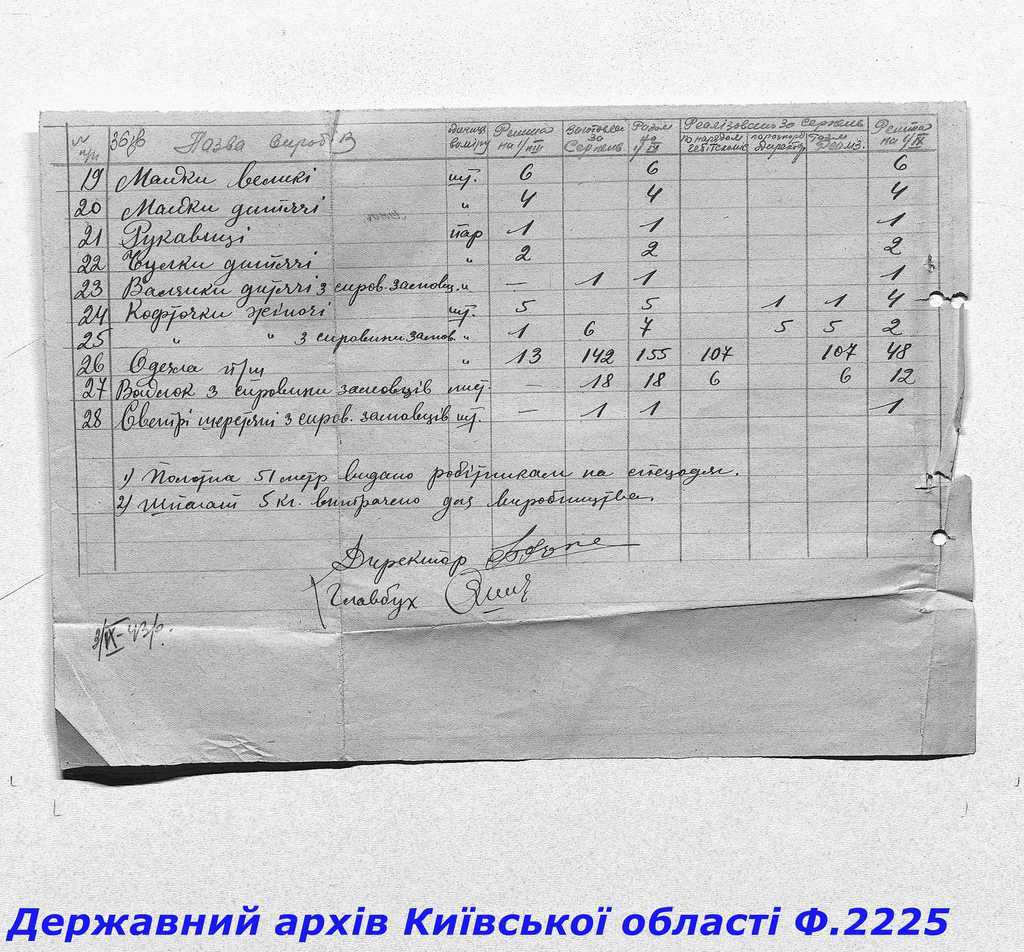 № п/п Назва виробів Одиниц. виміру Решта на 1/VIII Заготовка за Серпень Разом на 1/IX Реалізовано за серпень По нарядам гебітскоміс. Разом Реаліз. Решта на 1/IX
19 Майки великі шт. 6 6 6
20 Майки дитячі " 4 4 4
21 Рукавиці пар 1 1 1
22 Чулки дитячі " 2 2 2
23 Валянки дитячі з сиров. замовц. " — 1 1 1
24 Кофточки жіночі шт. 5 5 1 1 4
25 " " з сировини замов. " 1 6 7 5 5 2
26 Одеяла п/ш " 13 142 155 107 107 48
27 Войлок з сировини замовців лист. — 18 18 6 6 12
28 Светрі шерстяні з сиров. замовців шт. — 1 1 1
1) Полотна 51 метр видано робітникам на спецодяг.
2) Шпагат 5 кг. витрачено для виробництва.
Директор
Главбух
3/IX-43р.
Державний архів Київської області Ф.2225